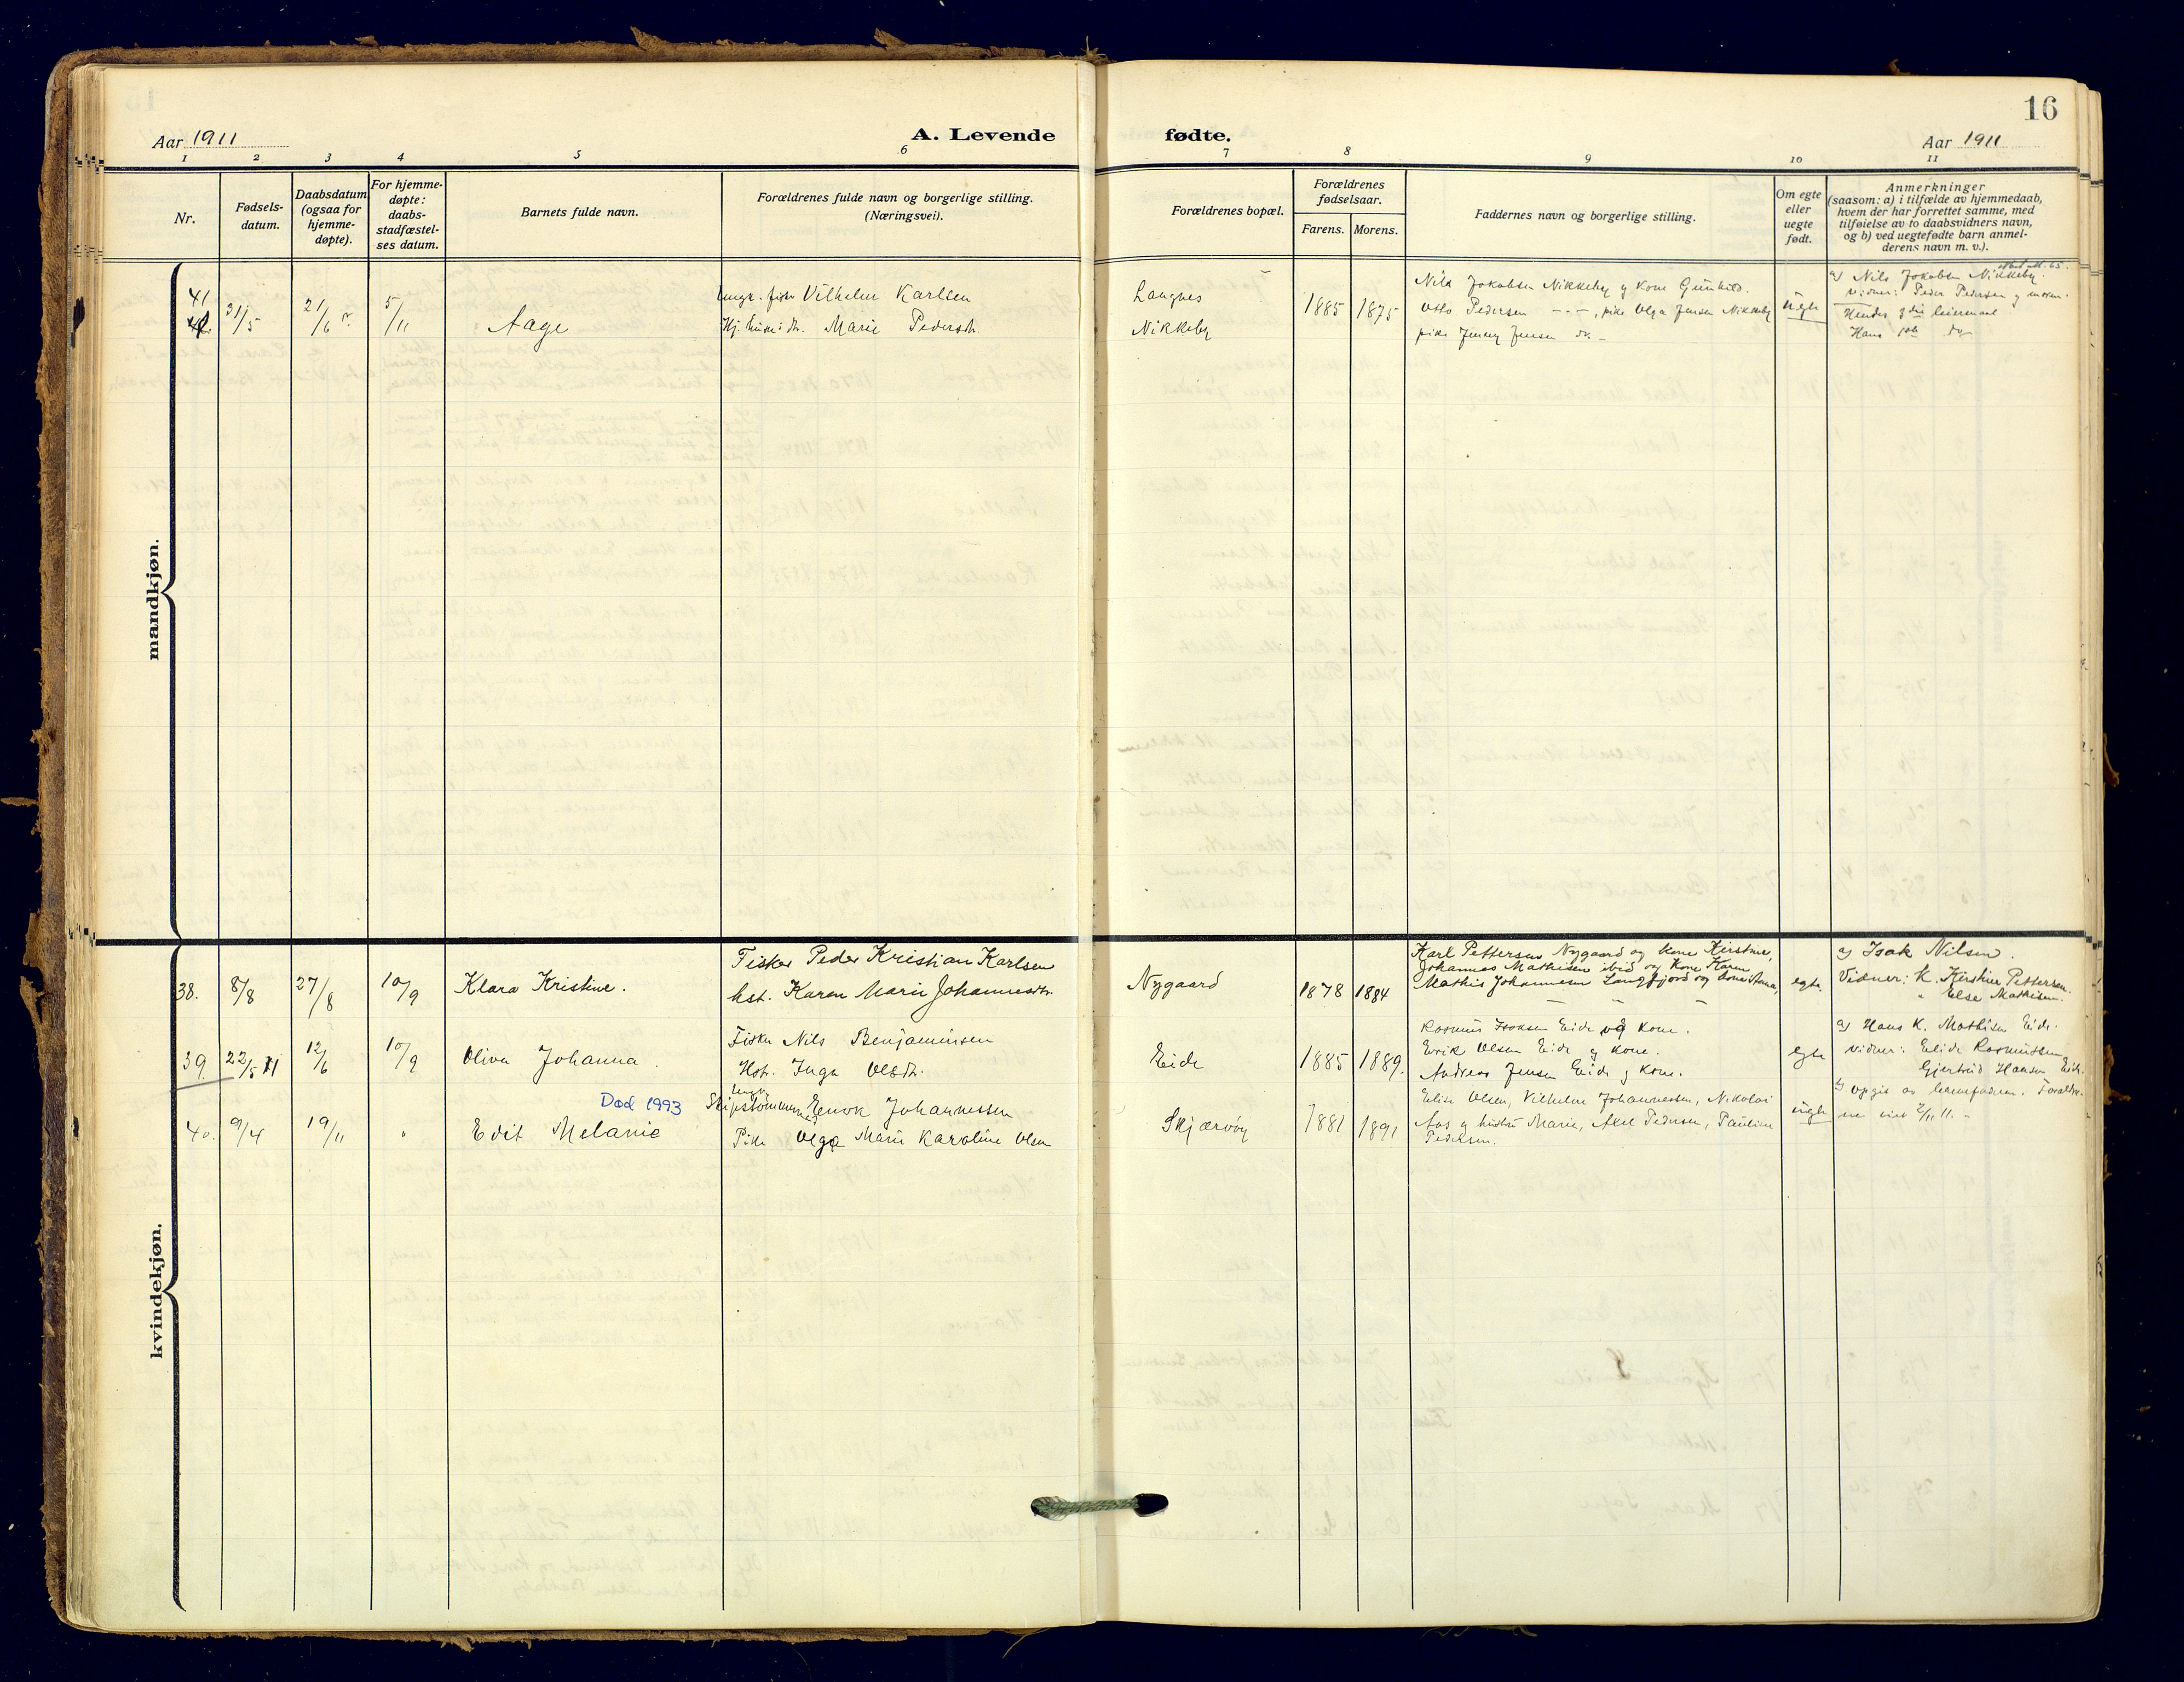 16
Aar 1911
A. Levende fødte.
Aar 1911
1 2 3 4 5 6 7 8 9 10 11
Nr.
Fødsels-
datum.
Daabsdatum
(ogsaa for
hjemme-
døpte).
For hjemme-
døpte:
daabs-
stadfæstel-
ses datum.
Barnets fulde navn.
Forældrenes fulde navn og borgerlige stilling.
(Næringsvei).
Forældrenes bopæl.
Forældrenes
fødselsaar.
Farens.
Morens.
Faddernes navn og borgerlige stilling.
Om egte
eller
uegte
født.
Anmerkninger
(saasom: a) i tilfælde av hjemmedaab,
hvem der har forrettet samme, med
tilføielse av to daabsvidners navn,
og b) ved uegtefødte barn anmel-
derens navn m. v.).
mandkjøn.
41
31/5
21/6
5/11
Aage
Ungk. fisker Vilhelm Karlsen
Marie Pedersdt.
Langnes
Nikkeby
1885
1875
Nils Jokobsen Nikkeby og kone Gunhild.
Otto Pedersen - - -, pike Olga Jensen Nikkeby
pike Jenny Jensen do. -
uegte
a) Nils Jokobsen Nikkeby.
Vidner: Peder Pedersen og moren.
Hendes 3die leiermaal
Hans 1ste do
kvindekjøn.
38.
8/8
27/8
10/9
Klara Kristine.
Fisker Peder Kristian Karlsen
hst. Karen Marie Johannesdtr.
Nygaard
1878
1884
Karl Pettersen Nygaard og kone Kirstine,
Johannes Mathisen ibid og kone Karen
Mathis Johannesen Langfjord og kone Anna,
egte.
a) Isak Nilsen.
Vidner: K. Kirstine Pettersen.
" Else Mathisen.
39.
22/5 11
12/6
10/9
Oliva Johanna.
Fisker Nils Benjaminsen
Hst. Inga Olsdt.
Eide
1885
1889.
Rasmus Isaksen Eide og kone.
Erik Olsen Eide og kone.
Andreas Jensen Eide og kone.
egte
a) Hans K. Mathisen Eide.
Vidner: Elide Rasmussen
Gjertrud Hansen Eide.
40.
9/4
19/11
"
Død 1993
Edit Melanie
Ungk.
Skipstømmermd Enok Johannessen
Pike Olga Marie Karoline Olsen
Skjærvøy
1881
1891
Elise Olsen, Vilhelm Johannessen, Nikolai
Aas og hustru Marie, Aksel Pedersen, Pauline
Pedersen.
uegte
b) opgit av barnefaderen. Foreldre-
ne viet 2/11 11. -